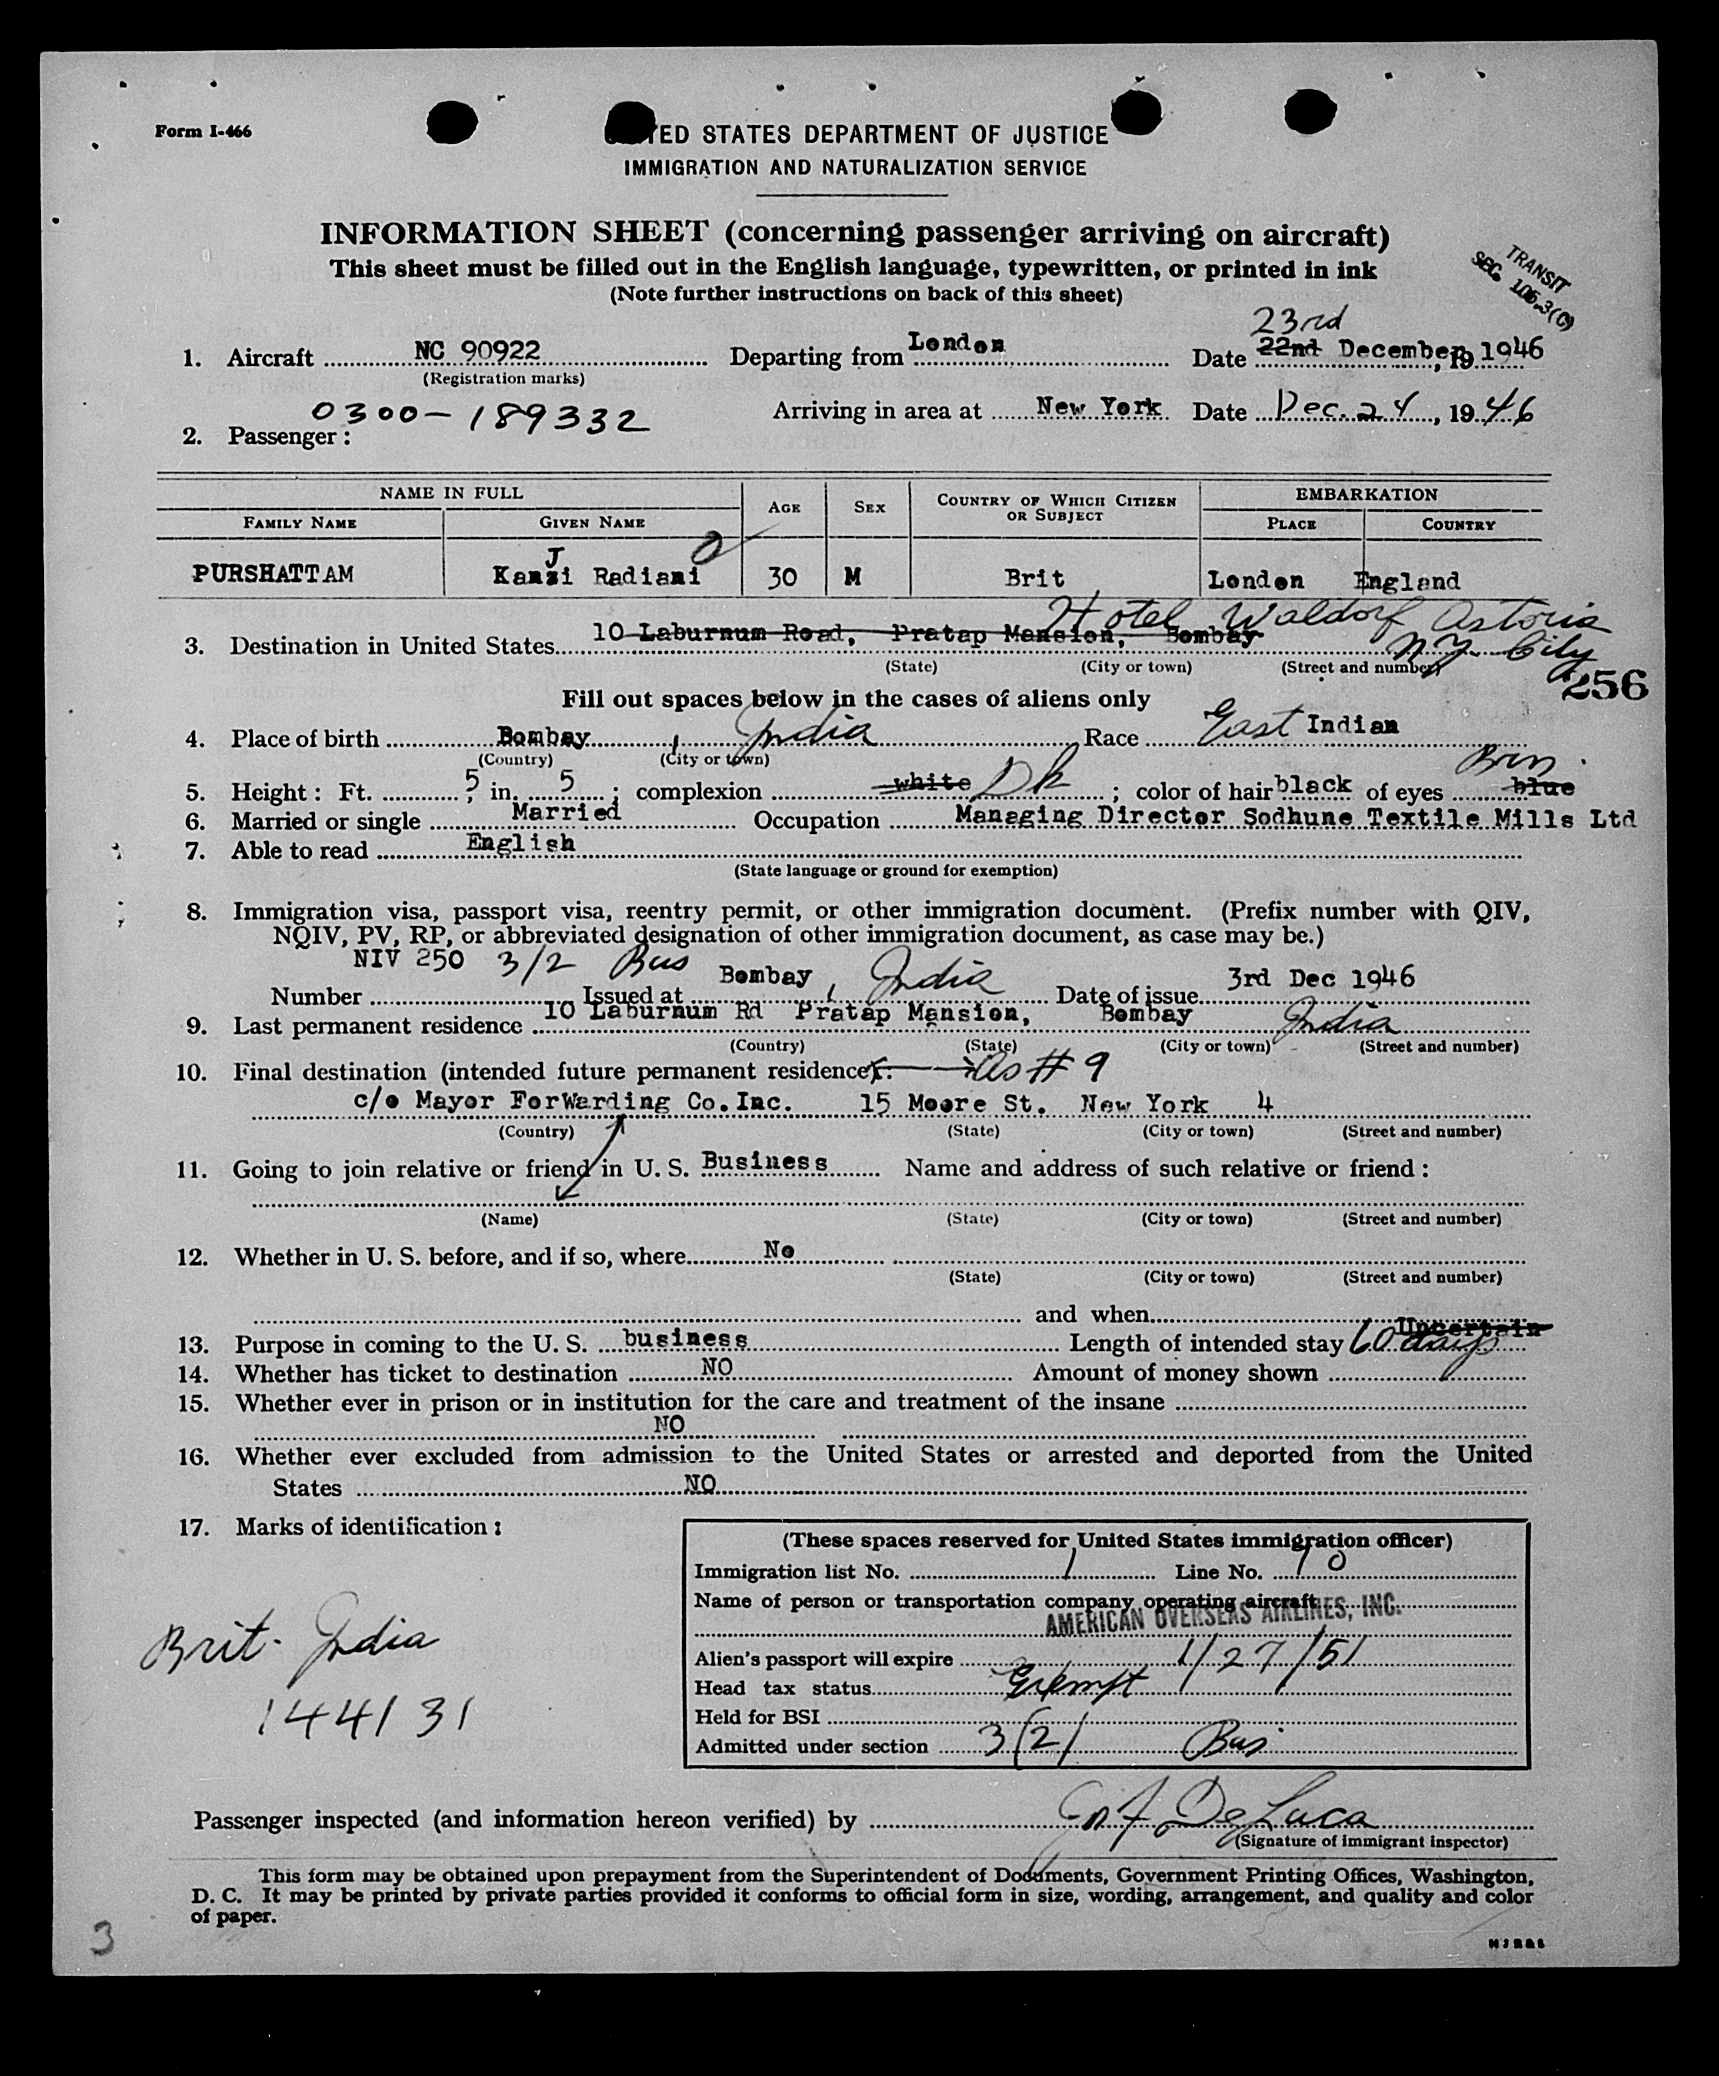 Form I-466
UNITED STATES DEPARTMENT OF JUSTICE
IMMIGRATION AND NATURALIZATION SERVICE
INFORMATION SHEET (concerning passenger arriving on aircraft)
This sheet must be filled out in the English language, typewritten, or printed in ink
(Note further instructions on back of this sheet)
TRANSIT
SEC. 106.3(C)
23rd
1. Aircraft NC 90922 Departing from London Date 22nd December, 19 1946
(Registration marks)
0300-189332 Arriving in area at New York Date Dec. 24, 1946
2. Passenger:
NAME IN FULL AGE SEX COUNTRY OF WHICH CITIZEN OR SUBJECT EMBARKATION
FAMILY NAME GIVEN NAME PLACE COUNTRY
J
PURSHATTAM Kanzi Radiani 30 M Brit London England
Hotel Waldorf Astoria
3. Destination in United States 10 Laburnum Road, Pratap Mansion, Bombay N.Y. City
(State) (City or town) (Street and number)
256
Fill out spaces below in the cases of aliens only
4. Place of birth Bombay, India Race East Indian
(Country) (City or town)
5. Height: Ft. 5, in. 5; complexion white Dk; color of hair black of eyes blue Brn.
6. Married or single Married Occupation Managing Director Sodhune Textile Mills Ltd
7. Able to read English
(State language or ground for exemption)
8. Immigration visa, passport visa, reentry permit, or other immigration document. (Prefix number with QIV,
NQIV, PV, RP, or abbreviated designation of other immigration document, as case may be.)
NIV 250 3/2 Bus
Number Issued at Bombay, India Date of issue 3rd Dec 1946
9. Last permanent residence 10 Laburnum Rd Pratap Mansion, Bombay India
(Country) (State) (City or town) (Street and number)
10. Final destination (intended future permanent residence): As # 9
c/o Mayor ForWarding Co.Inc. 15 Moore St. New York 4
(Country) (State) (City or town) (Street and number)
11. Going to join relative or friend in U. S. Business Name and address of such relative or friend:
(Name) (State) (City or town) (Street and number)
12. Whether in U. S. before, and if so, where No
(State) (City or town) (Street and number)
and when
13. Purpose in coming to the U. S. business Length of intended stay Uncertain 60 days
14. Whether has ticket to destination NO Amount of money shown
15. Whether ever in prison or in institution for the care and treatment of the insane
NO
16. Whether ever excluded from admission to the United States or arrested and deported from the United
States NO
17. Marks of identification:
Brit. India
144131
(These spaces reserved for United States immigration officer)
Immigration list No. 1 Line No. 10
Name of person or transportation company operating aircraft
AMERICAN OVERSEAS AIRLINES, INC.
Alien's passport will expire 1/27/51
Head tax status Exempt
Held for BSI
Admitted under section 3(2) Bus
Passenger inspected (and information hereon verified) by De Luca
(Signature of immigrant inspector)
This form may be obtained upon prepayment from the Superintendent of Documents, Government Printing Offices, Washington,
D. C. It may be printed by private parties provided it conforms to official form in size, wording, arrangement, and quality and color
of paper.
3